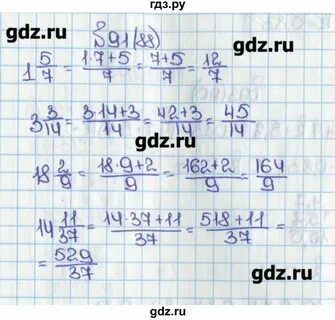 gdz.ru
§91(88)
gdz.ru
1 5/7 = (1·7+5)/7 = (7+5)/7 = 12/7
3 3/14 = (3·14+3)/14 = (42+3)/14 = 45/14
18 2/9 = (18·9+2)/9 = (162+2)/9 = 164/9
14 11/37 = (14·37+11)/37 = (518+11)/37 =
= 529/37
gdz.ru
gdz.ru
гдз.ру